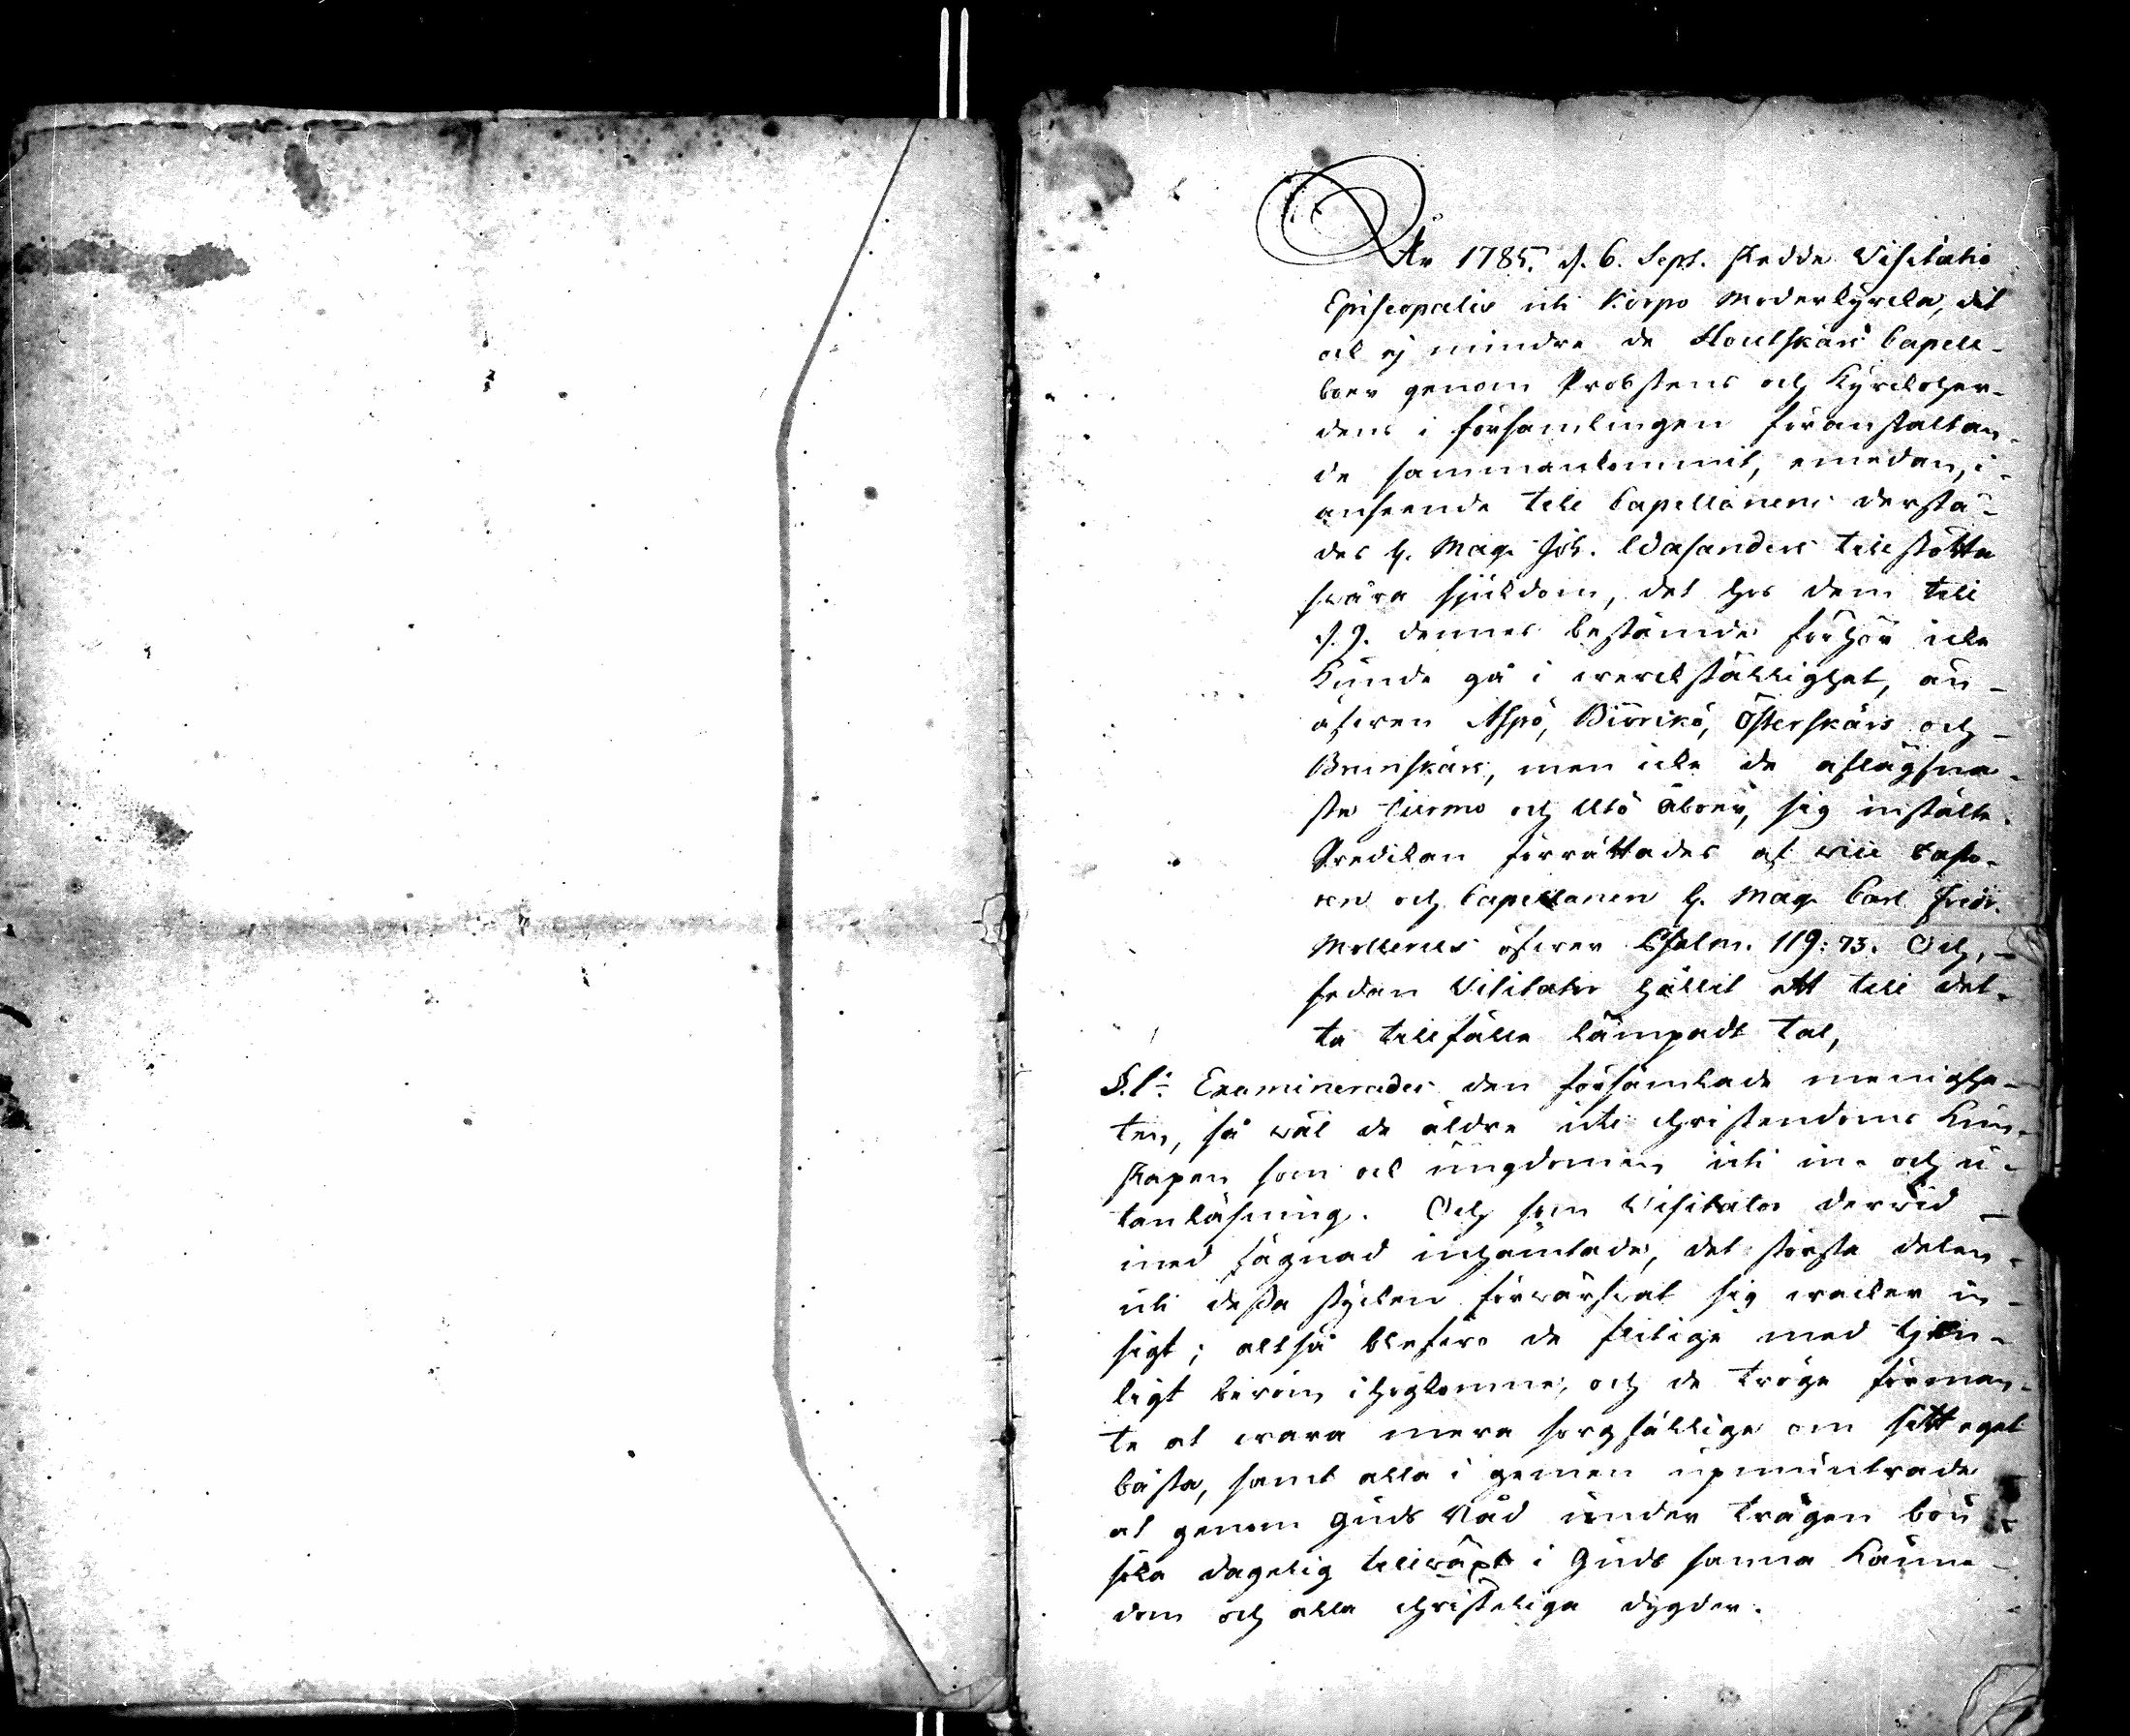 År 1785. d. 6. Sept. skedde Visitatio
Episcopalis uti Korpo Moderkyrcka, dit
ock ej mindre de Houtskärs Capell-
boer genom Probstens och Kyrckoher-
dens i församlingen föranstaltan-
de sammankommit, emedan, i
anseende till Capellanens dersta-
des H. Mag. Joh. Wasanders tillstötta
svåra sjukdom, det hos dem till
d. 9. dennes bestämde förhör icke
kunde gå i werckställighet, än-
äfwen Aspö, Biörkö, Österskärs och
Brunskärs, men icke de aflägsna-
ste Jurmo och Utö åboer, sig instält.
Predikan förrättades af vice Pasto-
ren och Capellanen H. Mag. Carl Fredr.
öfwer Psalm. 119: 73. Och,
sedan Visitator hållit ett till det-
ta tillfälle lämpadt tal,
§. 1. Examinerades den församlade menighe-
ten, så wäl de äldre uti christendoms kun-
skapen som ock ungdomen uti in- och u-
tanläsning. Och som Visitator derwid
med fägnad inhämtade, det största delen
uti dessa stycken förwärfwat sig wacker in-
sigt; altså blefwo de flitige med tjen-
ligt beröm ihogkomne, och de tröge förman-
te at wara mera sorgfällige om sitt eget
bästa, samt alla i gemen upmuntrade
at genom Guds Nåd under trägen bön
söka dagelig tillwäxt i Guds sanna känne-
dom och alla christeliga dygder.